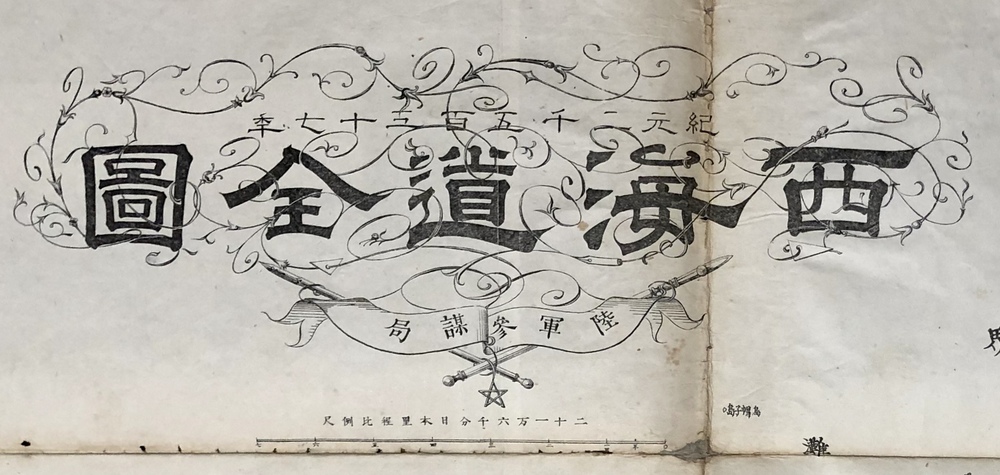 紀元二千五百三十七年
西海道全圖
陸軍參謀局
二十一万六千分日本里程比例尺
灘